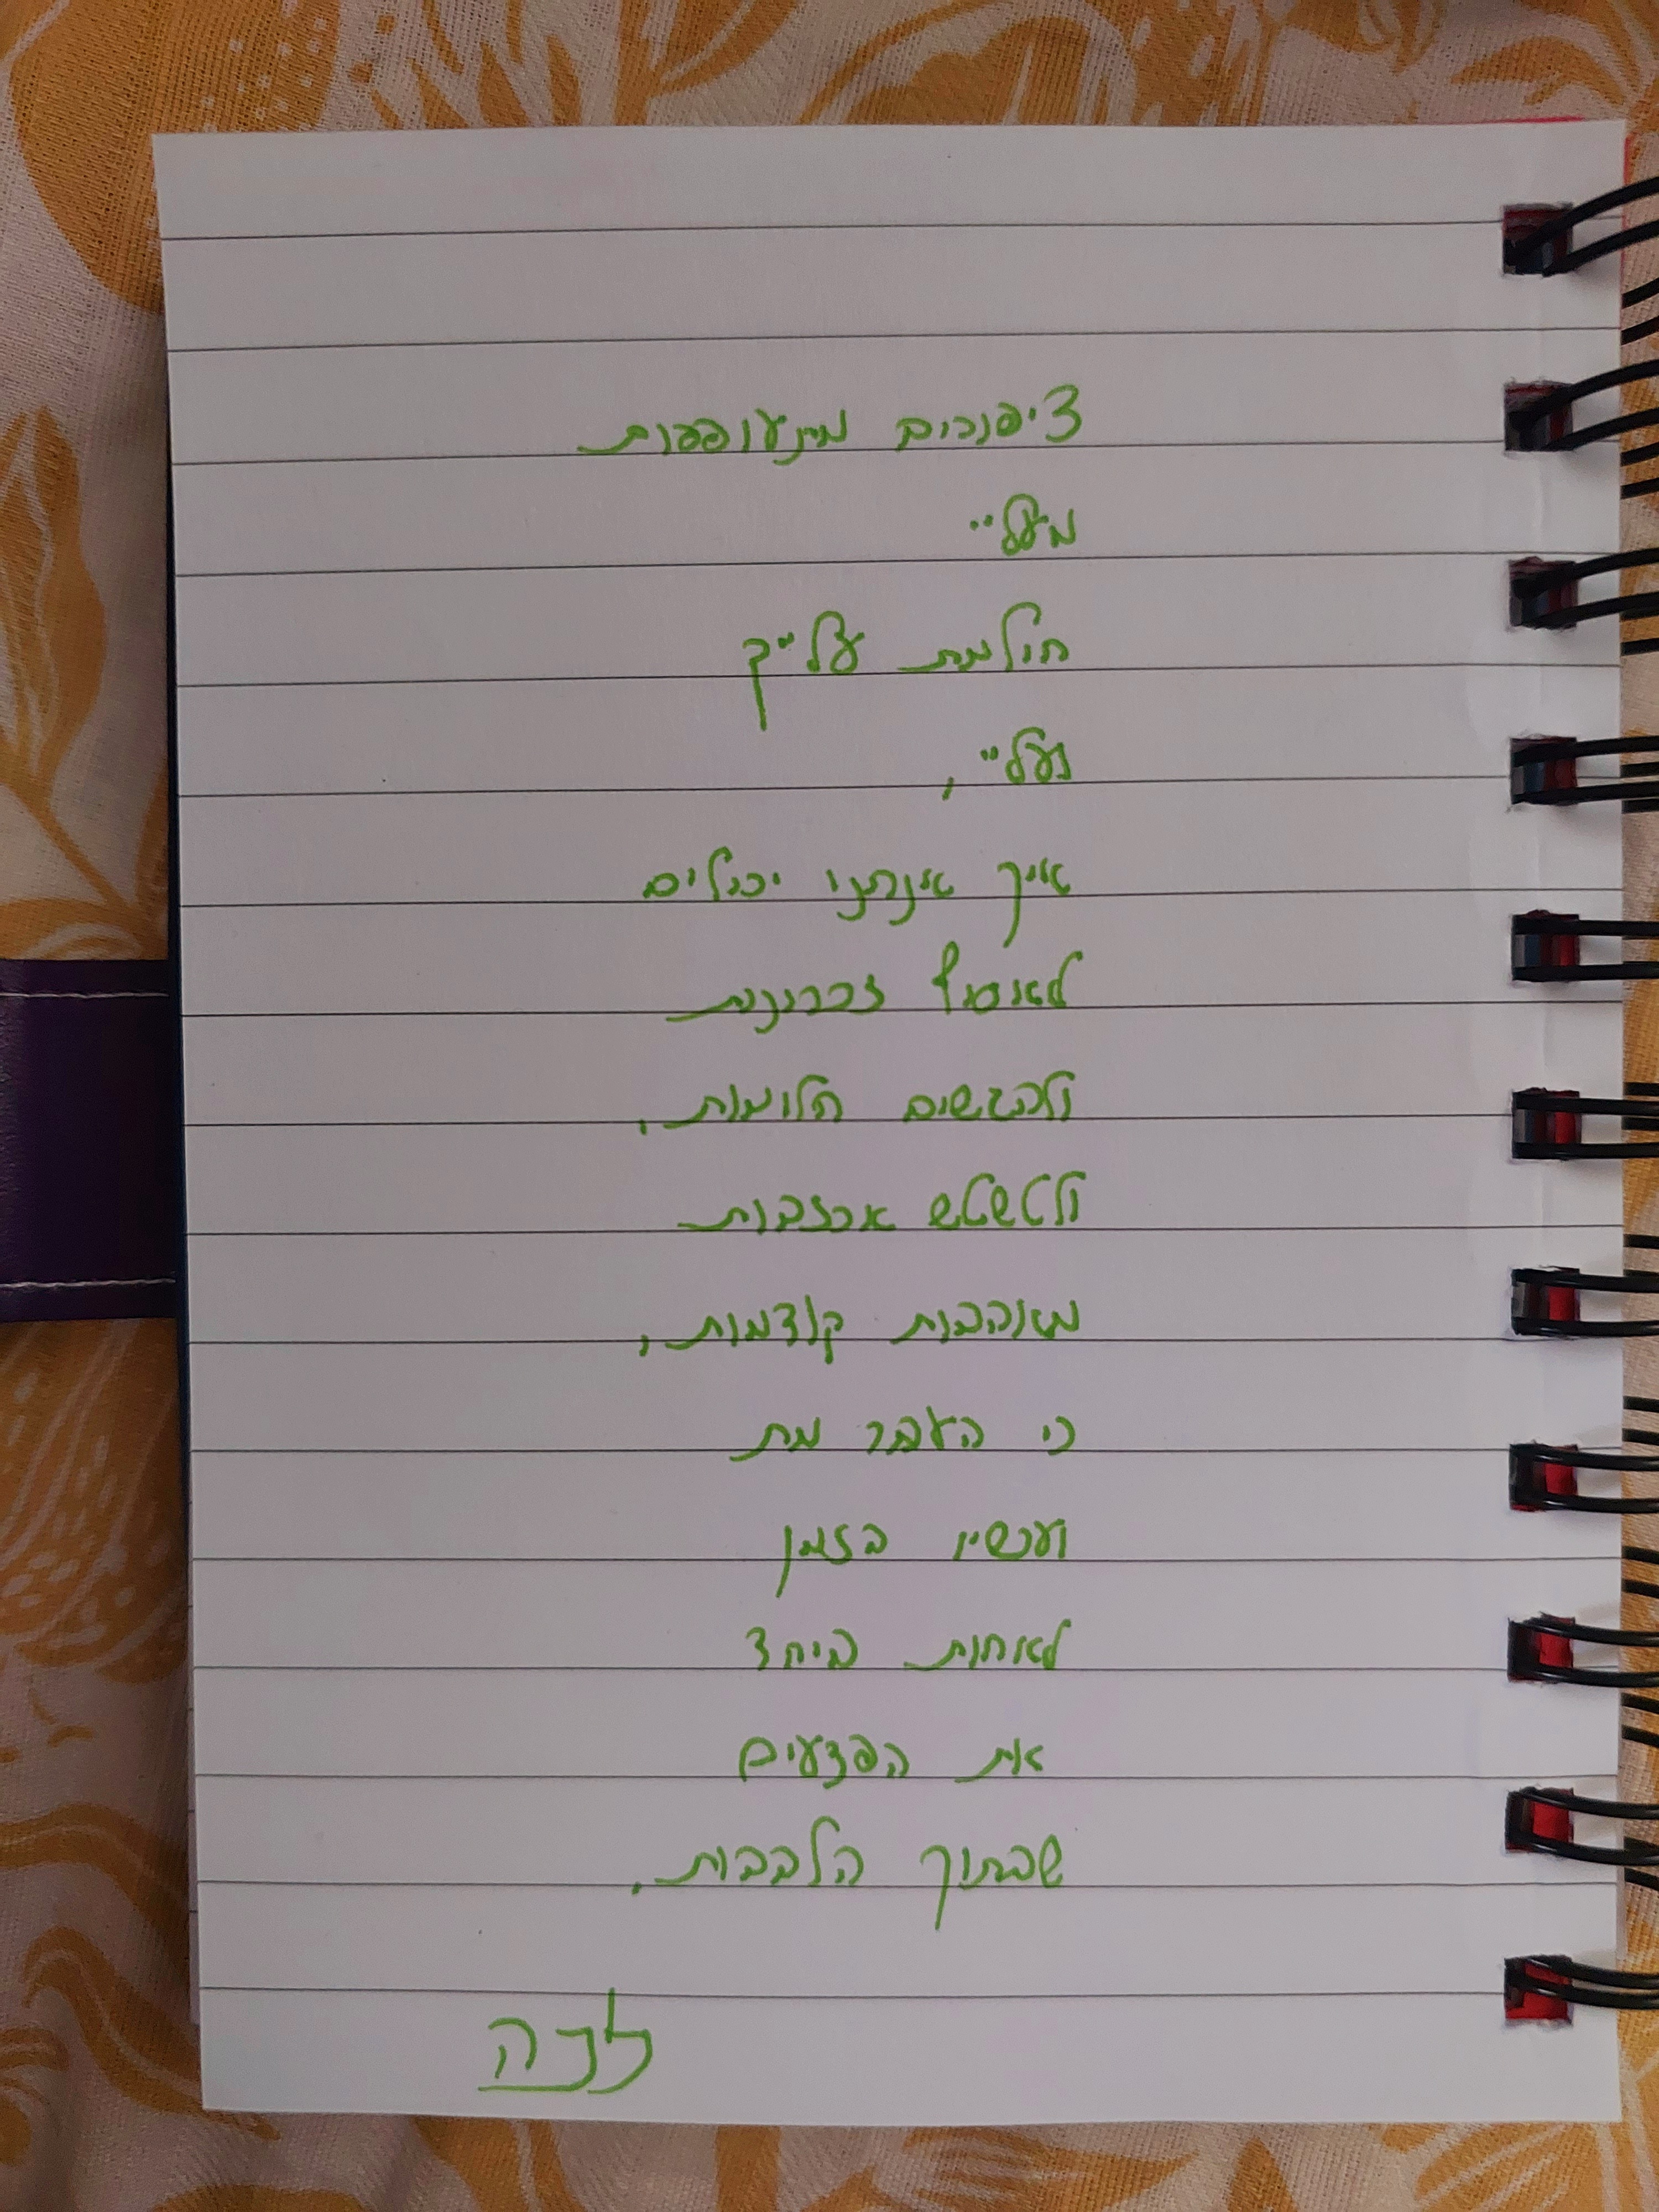 ציפורים מתעופפות
מעליי
חולמת עלייך
ועליי,
איך אנחנו יכולים
לאסוף זכרונות
ולהגשים חלומות,
ולטשטש אכזבות
מאהבות קודמות,
כי העבר מת
ועכשיו הזמן
לאחות ביחד
את הפצעים
שבתוך הלבבות.